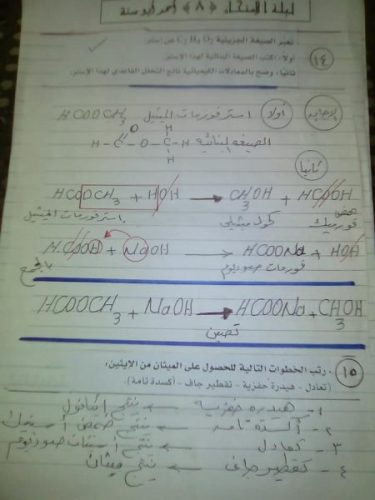 ليلة الامتحان (٨) أحمد أبو سنة
١٤
تعبر الصيغة الجزيئية C₂H₄O₂ عن إستر.
أولا: اكتب الصيغة البنائية لهذا الإستر.
ثانيا: وضح بالمعادلات الكيميائية ناتج التحلل القاعدي لهذا الإستر.
أولاً استر فورمات الميثيل HCOOCH₃
الصيغه البنائيه
O H
H - C - O - C - H
H
ثانيا
HCOOCH₃ + HOH → CH₃OH + HCOOH
استر فورمات الميثيل كحول ميثيلى حمض فورميك
HCOOH + NaOH → HCOONa + HOH
فورمات صوديوم
بالجمع
HCOOCH₃ + NaOH → HCOONa + CH₃OH
تصبن
١٥
رتب الخطوات التالية للحصول على الميثان من الإيثين.
(تعادل - هيدرة حفزية - تقطير جاف - أكسدة تامة)
١- هيدره حفزيه ← ينتج إيثانول
٢- أكسدة تامه ← ينتج حمض أسيتيك
٣- تعادل ← ينتج أسيتات صوديوم
٤- تقطير جاف ← ينتج ميثان